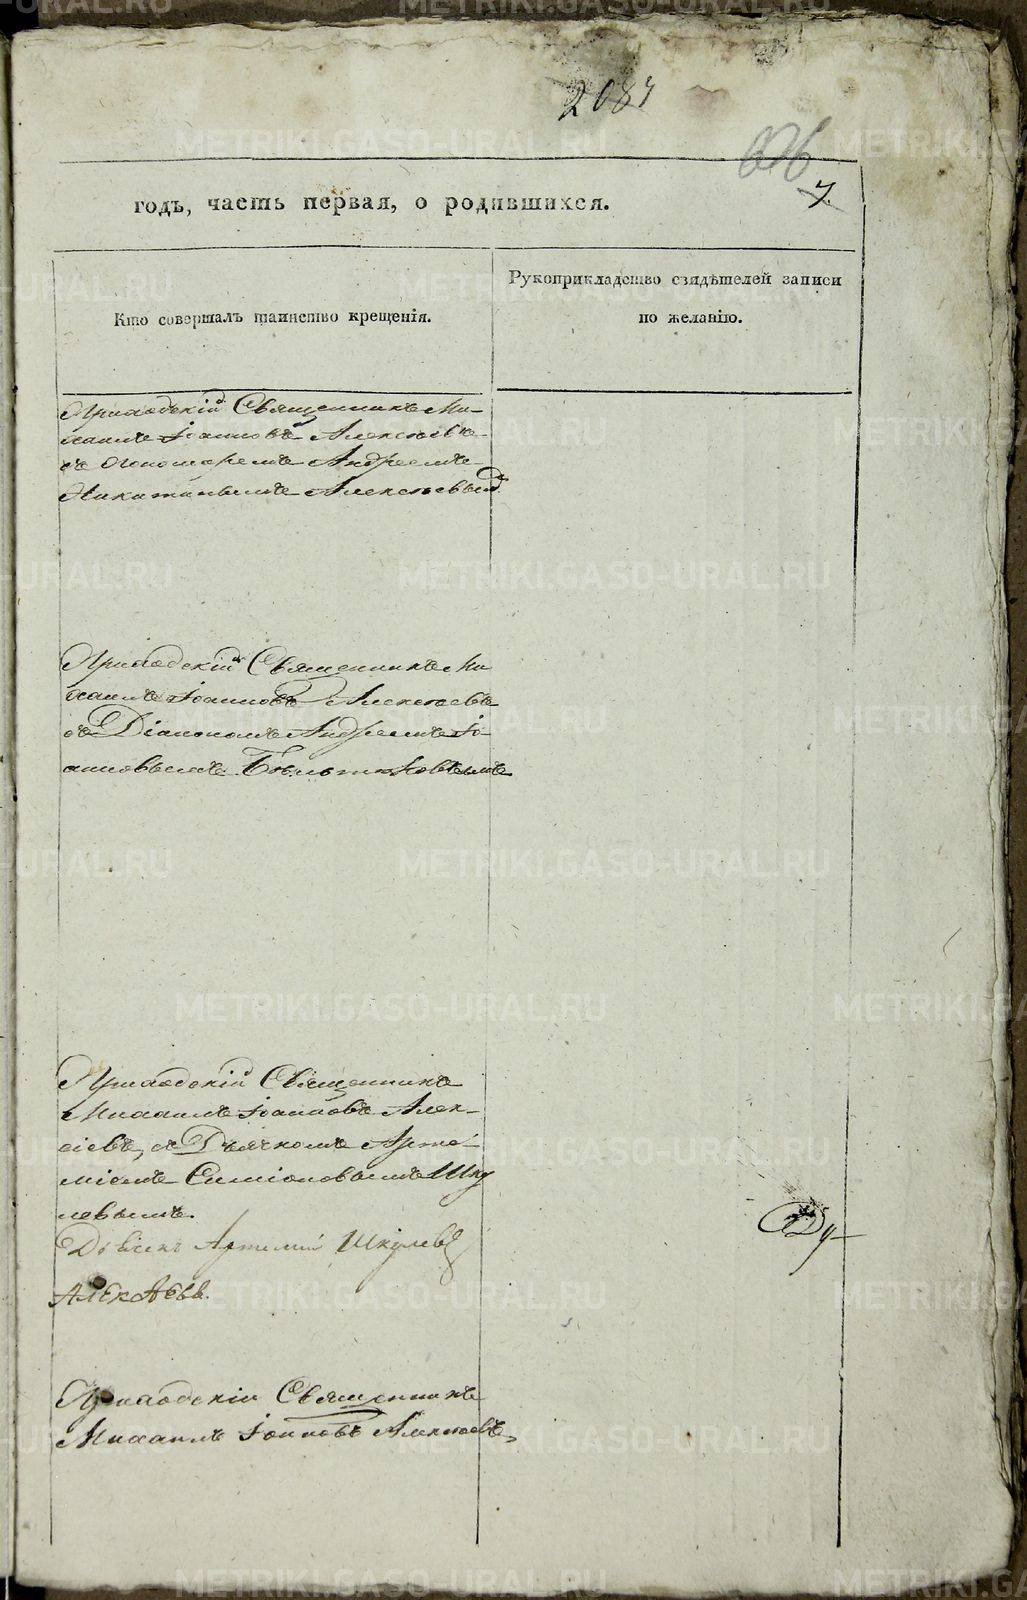 2087
606
7.
годъ, часть первая, о родившихся.
Кто совершалъ таинство крещенія.
Рукоприкладство свидѣтелей записи
по желанію.
Приходскій Священникъ Ми-
хаилъ Іоанновъ Алексѣевъ
съ пономаремъ Андреемъ
Никитинымъ Алексѣевым
Приходскій Священникъ Ми
хаилъ Іоанновъ Алексѣевъ
съ Діакономъ Андреемъ Іо-
анновымъ Бѣльтюковымъ
Приходскій Священникъ
Михаилъ Іоанновъ Алек-
сіевъ, съ Дьячкомъ Арте-
міемъ Симіоновымъ Шку
левымъ.
Артемій Шкулевъ
Алексѣевъ.
Приходскій Священникъ
Михаилъ Іоанновъ Алексѣевъ,
METRIKI.GASO-URAL.RU